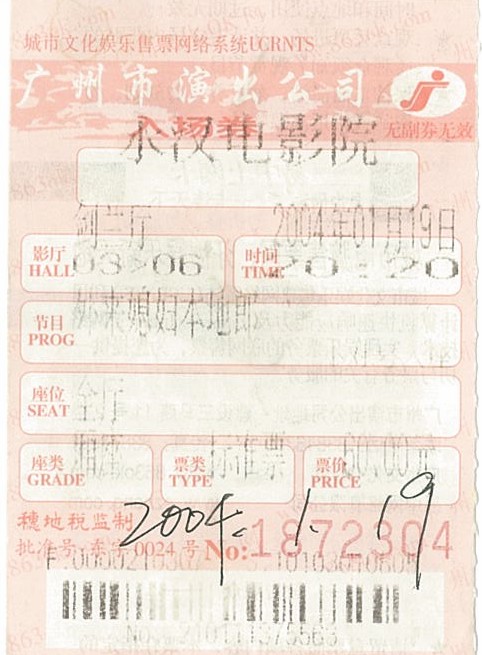 城市文化娱乐售票网络系统UCRNTS
广州市演出公司
入场券
永汉电影院
无副券无效
剑兰厅
2004年01月19日
影厅
HALL
03>06
时间
TIME
20:20
节目
PROG
外来媳妇本地郎
座位
SEAT
全厅
座类
GRADE
厢座
票类
TYPE
标准票
票价
PRICE
60.00元
穗地税监制
批准号:东字 0024 号 No: 1872304
2004. 1. 19